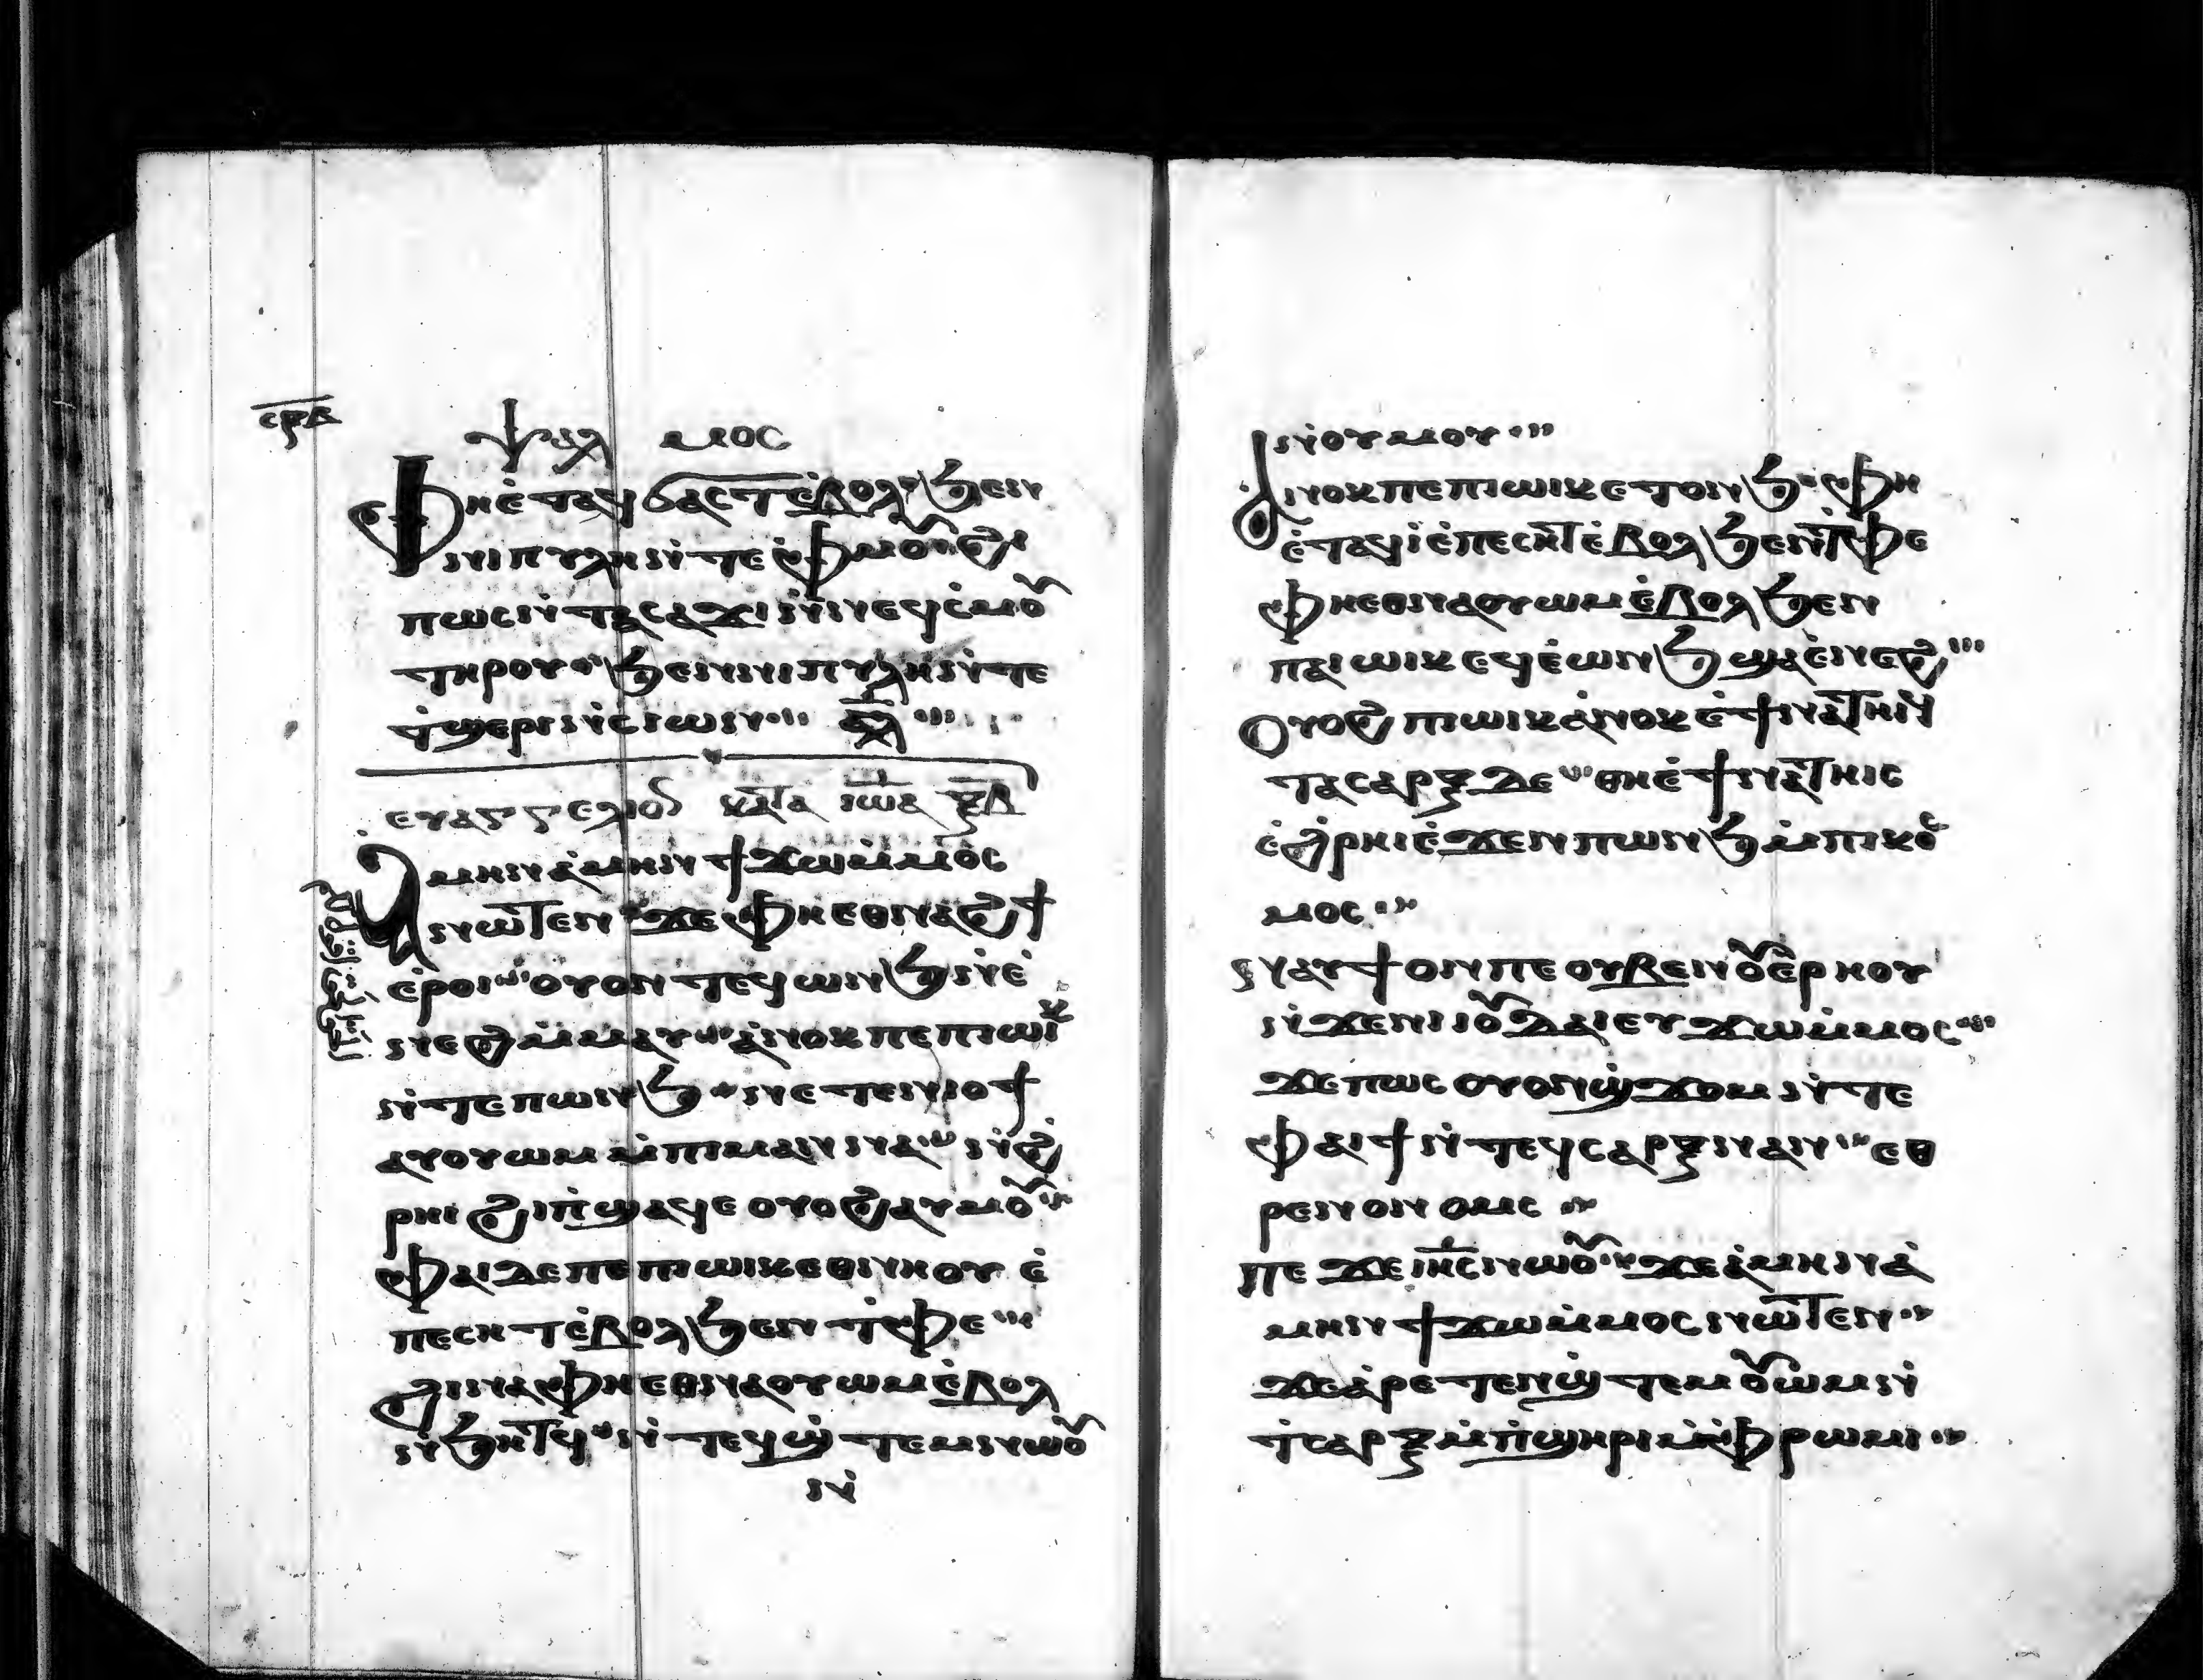 ⲥⲣⲇ
ⲯⲁⲗ ⲙⲟⲥ
ⲫⲏⲉ̇ⲧⲁϥϭⲁⲥⲧⲉ̇ⲃⲟⲗ ϧⲉⲛ
ⲛⲓⲡⲩⲗⲏⲛ̇ⲧⲉ ⲫ̇ⲙⲟⲩ ϩⲓ
ⲡⲱⲥⲛ̇ⲧⲁⲥⲁϫⲓ ⲛ̇ⲛⲉϥⲥ̇ⲙⲟⲩ
ⲧⲏⲣⲟⲩ ϧⲉⲛⲛⲓⲡⲩⲗⲏⲛ̇ⲧⲉ
ⲧ̇ϣⲉⲣⲓⲛ̇ⲥⲓⲱⲛ ⲁ̅ⲗ̅
ⲉⲩⲁⲅⲅⲉⲗⲓⲟⲛ ⲕⲁⲧⲁ ⲓⲱⲁ ⲝⲇ
ⲁ̇ⲙⲏⲛⲁ̇ⲙⲏⲛ ϯϫⲱⲙ̇ⲙⲟⲥ
ⲛⲱⲧⲉⲛ ϫⲉ ⲫⲏⲉⲑⲛⲁϩϯ
ⲉ̇ⲣⲟⲓ ⲟⲩⲟⲛⲧⲉϥⲱⲛϧ ⲛ̇ⲉ̇
ⲛⲉϩ ⲙ̇ⲙⲁⲩ ⲁ̇ⲛⲟⲕ ⲡⲉ ⲡⲓⲱⲓⲕ
ⲛ̇ⲧⲉ ⲡⲱⲛϧ ⲛⲉⲧⲉⲛⲓⲟϯ
ⲁⲩⲟⲩⲱⲙ ⲙ̇ⲡⲓⲙⲁⲛⲛⲁ ⲛ̇ϩ
ⲣⲏⲓ ϩⲓⲡ̇ϣⲁϥⲉ ⲟⲩⲟϩ ⲁⲩⲙⲟⲩ
ⲫⲁⲓ ⲇⲉ ⲡⲉ ⲡⲓⲱⲓⲕ ⲉⲑⲛⲏⲟⲩ ⲉ̇
ⲡⲉⲥⲏⲧ ⲉ̇ⲃⲟⲗ ϧⲉⲛ ⲧ̇ⲫⲉ
ϩⲓⲛⲁ ⲫⲏⲉⲑⲛⲁⲟⲩⲱⲙ ⲉ̇ⲃⲟⲗ
ⲛ̇ϧⲏⲧϥ ⲛ̇ⲧⲉϥϣ̇ⲧⲉⲙⲛⲱⲟⲩ
ⲛ̇
ⲛ̇ⲟⲩⲙⲟⲩ
ⲁ̇ⲛⲟⲕ ⲡⲉ ⲡⲓⲱⲓⲕ ⲉⲧⲟⲛϧ ⲫⲏ
ⲉ̇ⲧⲁϥⲓ̇ ⲉ̇ⲡⲉⲥⲏⲧ ⲉ̇ⲃⲟⲗ ϧⲉⲛ ⲧ̇ⲫⲉ
ⲫⲏⲉⲑⲛⲁⲟⲩⲱⲙ ⲉ̇ⲃⲟⲗ ϧⲉⲛ
ⲡⲁⲓⲱⲓⲕ ⲉϥⲉ̇ⲱⲛϧ ϣⲁⲉ̇ⲛⲉϩ
ⲟⲩⲟϩ ⲡⲓⲱⲓⲕ ⲁ̇ⲛⲟⲕ ⲉ̇ϯⲛⲁⲧⲏⲓϥ
ⲧⲁⲥⲁⲣⲝ ⲇⲉ ⲑⲏⲉ̇ϯⲛⲁⲧⲏⲓⲥ
ⲉ̇ϩⲣⲏⲓ ⲉ̇ϫⲉⲛ ⲡⲱⲛϧ ⲙ̇ⲡⲓⲕⲟⲥ
ⲙⲟⲥ
ⲛⲁⲩϯ ⲟⲛⲡⲉ ⲟⲩⲃⲉ ⲛⲟⲩⲉ̇ⲣⲏⲟⲩ
ⲛ̇ϫⲉⲛⲓⲓⲟⲩⲇⲁⲓ ⲉⲩϫⲱⲙ̇ⲙⲟⲥ
ϫⲉ ⲡⲱⲥ ⲟⲩⲟⲛϣ̇ϫⲟⲙ ⲛ̇ⲧⲉ
ⲫⲁⲓ ϯ ⲛ̇ⲧⲉϥⲥⲁⲣⲝ ⲛⲁⲛ ⲉⲑ
ⲣⲉⲛⲟⲛⲟⲙⲥ
ⲡⲉϫⲉ ⲓⲏⲥ ⲛⲱⲟⲩ ϫⲉ ⲁ̇ⲙⲏⲛ ⲁ̇
ⲙⲏⲛ ϯϫⲱⲙ̇ⲙⲟⲥ ⲛⲱⲧⲉⲛ
ϫⲉ ⲁ̇ⲣⲉⲧⲉⲛϣ̇ⲧⲉⲙⲟⲩⲱⲙ ⲛ̇
ⲧ̇ⲥⲁⲣⲝ ⲙ̇ⲡ̇ϣⲏⲣⲓ ⲙ̇ⲫ̇ⲣⲱⲙⲓ